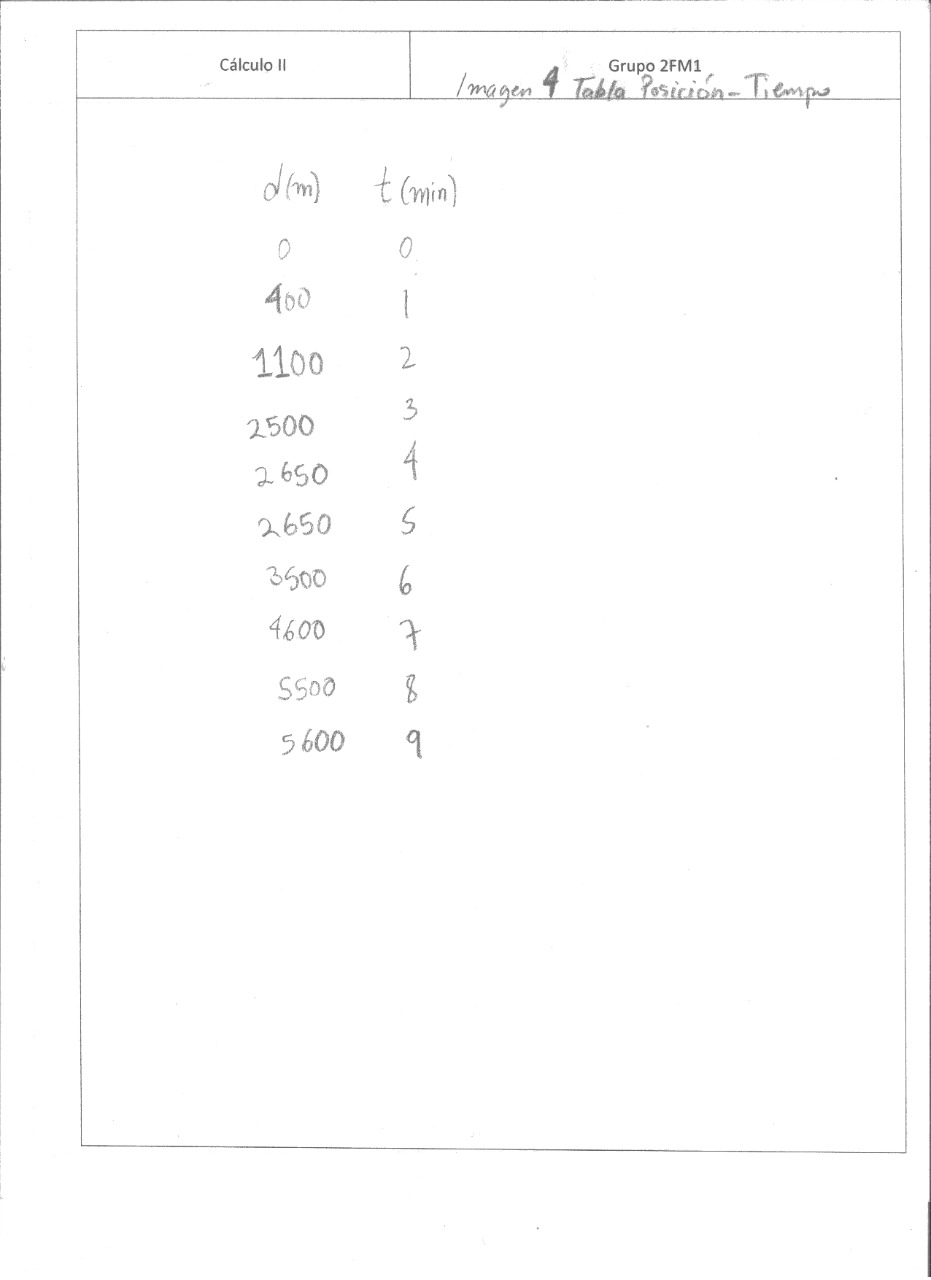 Cálculo II
Grupo 2FM1
Imagen 4 Tabla Posición-Tiempo
d(m) t(min)
0 0
400 1
1100 2
2500 3
2650 4
2650 5
3500 6
4600 7
5500 8
5600 9